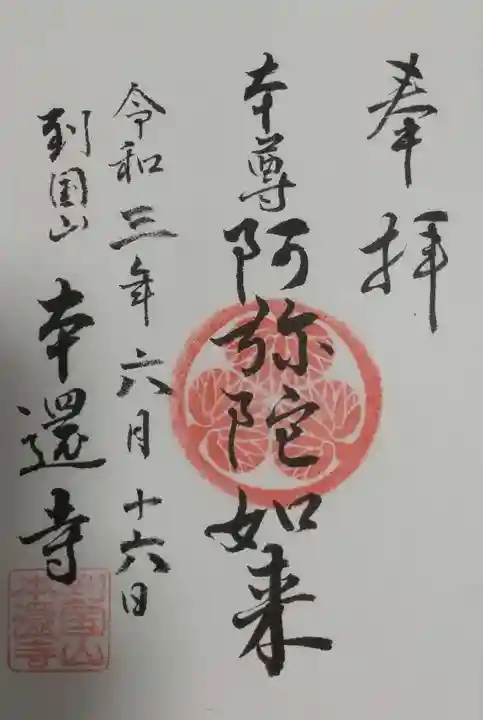 奉拝
本尊 阿弥陀如来
令和三年六月十六日
到国山 本還寺
到国山
本還寺